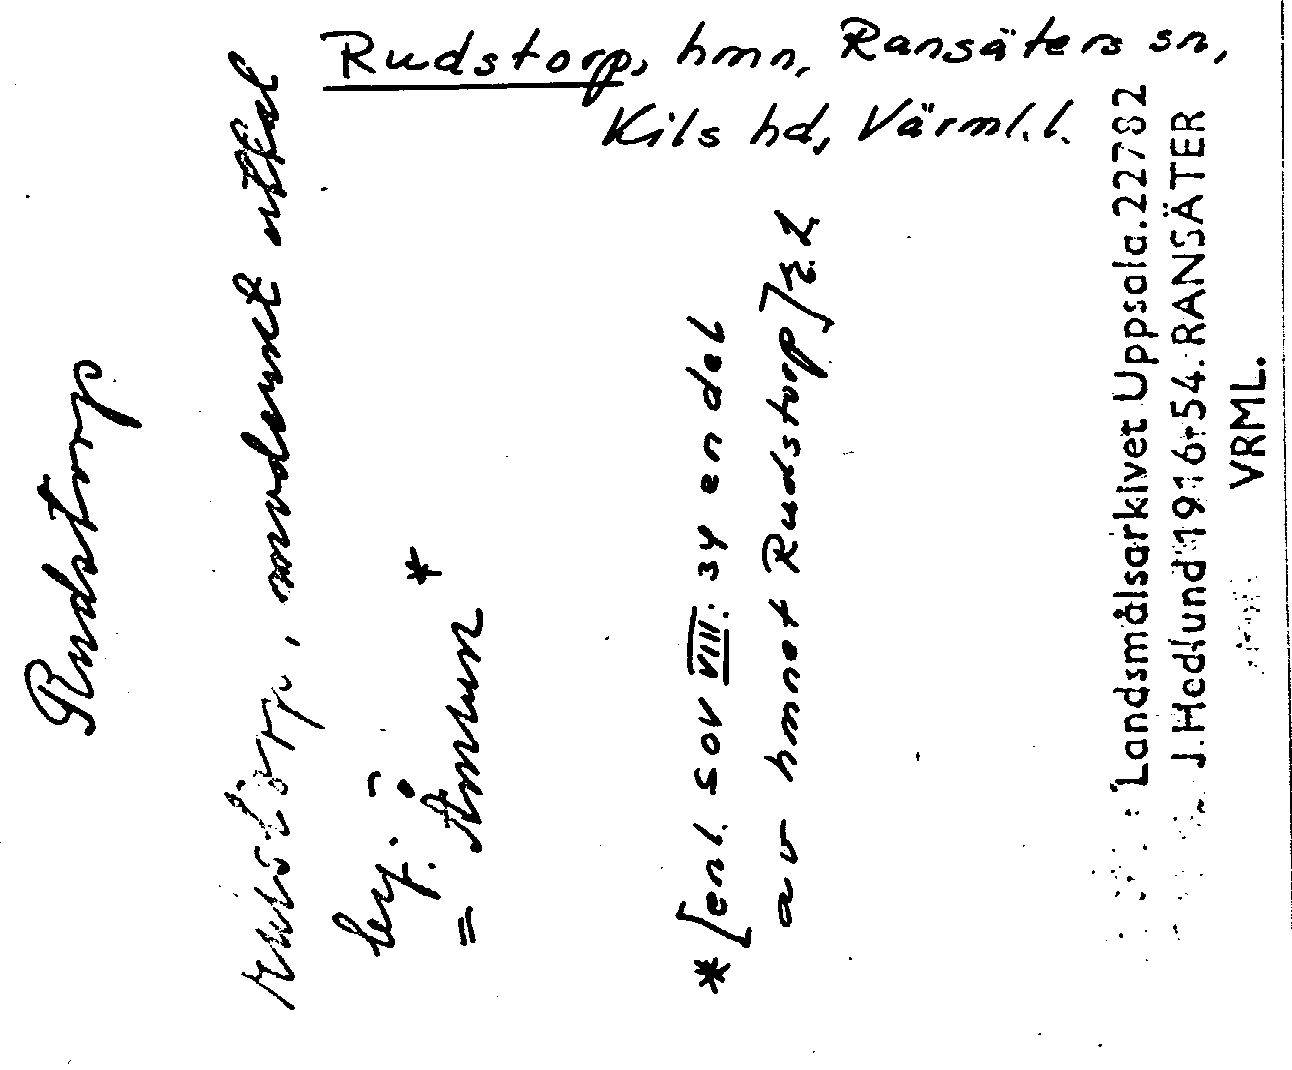 Rudstorp, hmn, Ransäters sn,
Kils hd, Värml. l.
Rudstorp
modernt uttal
by: i
= Åmun *
* [enl. SOV VIII: 34 en del
av hmnet Rudstorp]
Landsmålsarkivet Uppsala. 22782
J. Hedlund 1916-54. RANSÄTER
VRML.